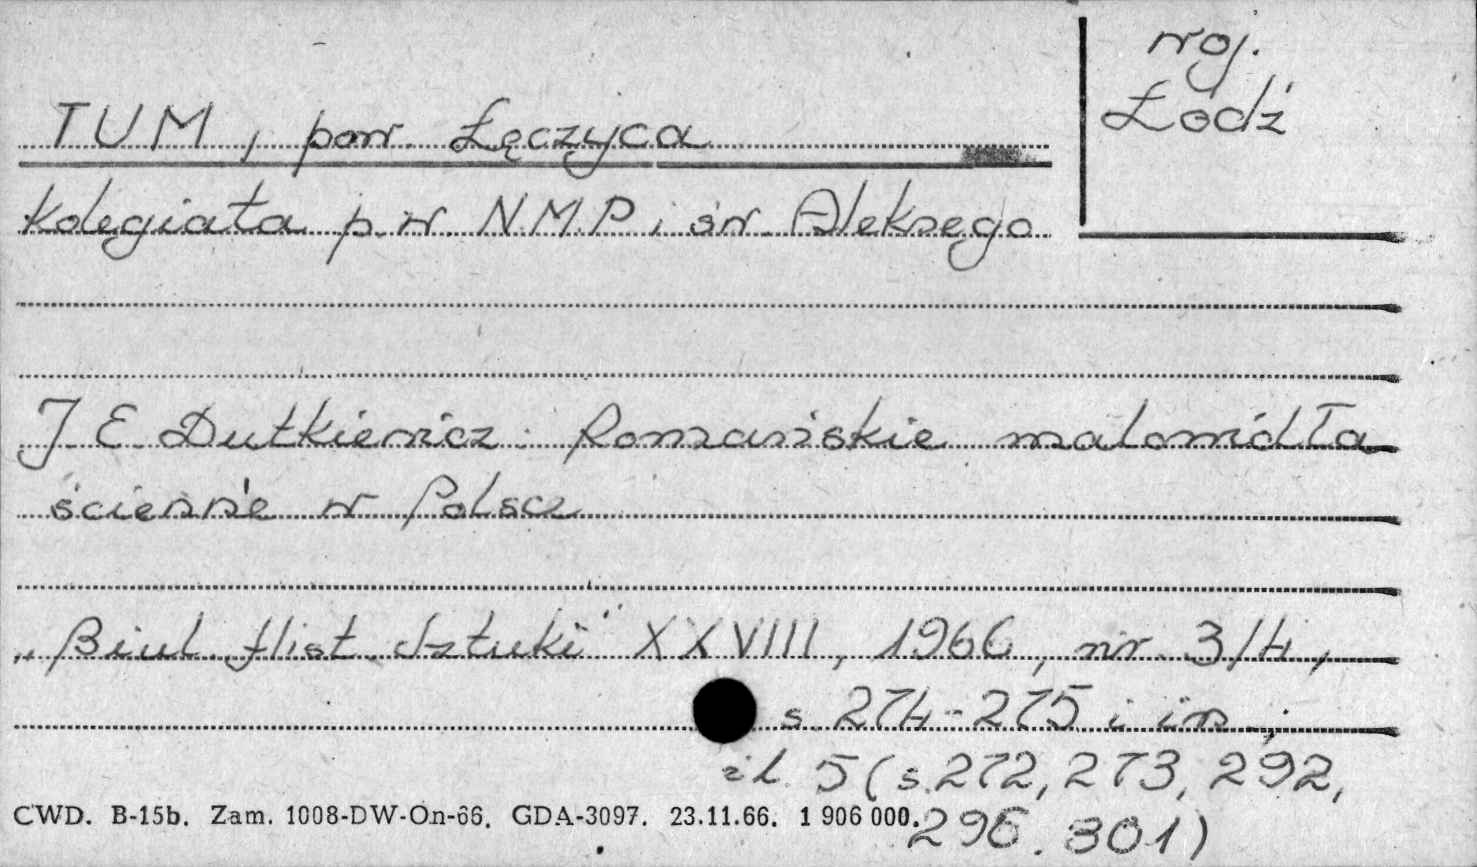 woj.
Łódź
TUM, pow. Łęczyca
Kolegiata p.w. N.M.P. i św. Aleksego
J E Dutkiewicz: Romańskie malowidła
ścienne w Polsce
„Biul. Hist. Sztuki” XXVIII, 1966, nr 3/4,
s. 274-275 i in.;
il. 5 (s. 272, 273, 292,
296. 301)
CWD. B-15b. Zam. 1008-DW-On-66. GDA-3097. 23.11.66. 1 906 000.